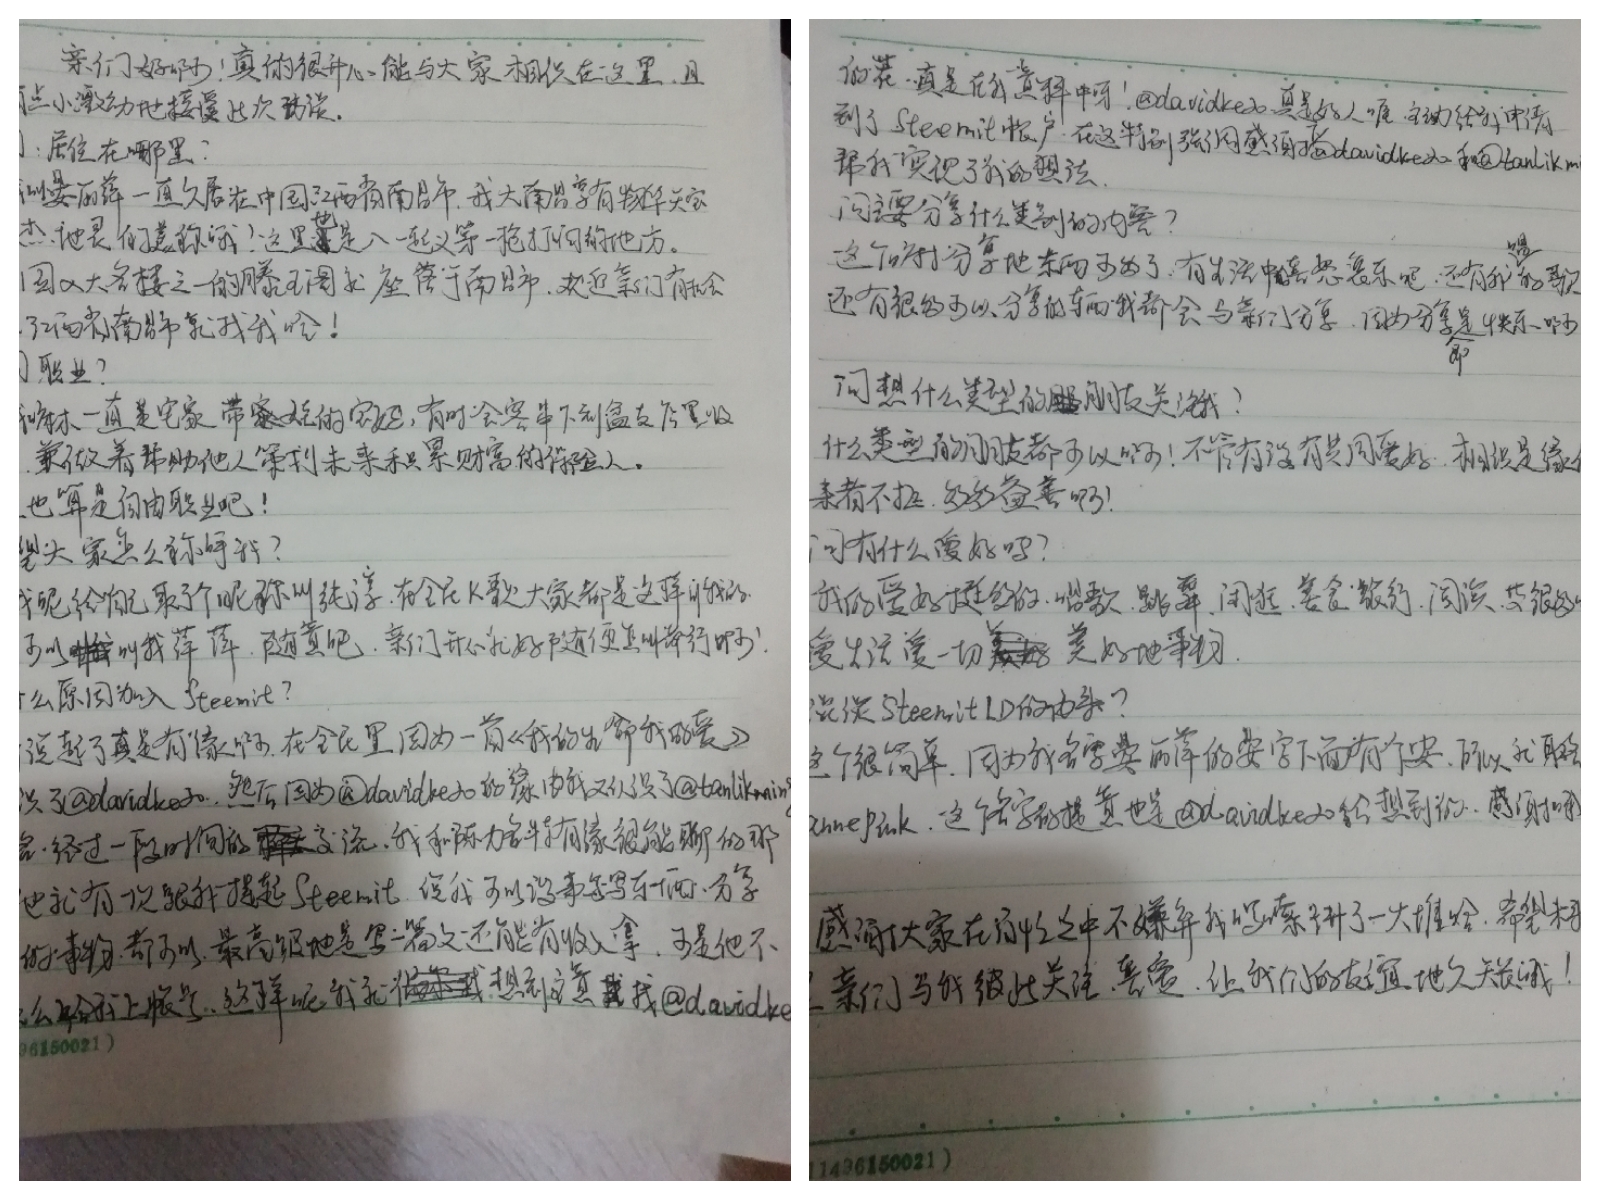 亲们好啊!真的很开心能与大家相识在这里,且
有点小激动地接受此次访谈。
问:居住在哪里?
晏丽萍一直久居在中国江西省南昌市,我大南昌享有物华天宝
杰地灵的美称哦!这里也是八一起义第一枪打响的地方。
国四大名楼之一的滕王阁就座落于南昌市,欢迎亲们有机会
江西省南昌市就找我哈!
问职业?
我嘛一直是宅家带的宝妈,有时会客串下到盒支付里收
兼做着帮助他人策划未来积累财富的保险人。
也算是自由职业吧!
望大家怎么称呼我?
我呢给自己取了个昵称叫纯淳,在全民K歌大家都是这样叫我的
可以叫我萍萍,随意吧,亲们开心就好随便怎叫都行啊!
什么原因加入Steemit?
说起了真是有缘啊,在全民里因为一首《我的生命我的爱》
识了@davidke20,然后因为@davidke20的缘由我又认识了@tanlikming
经过一段时间的交流,我和陈力名特有缘很能聊的那
他就有一次跟我提起Steemit,说我可以没事写写东西,分享
的事物都可以,最高级地是写一篇文还能有收入拿,可是他不
么给我上帐号,这样呢,我就想到主意找@davidke
96150021)
的花,真是在我意料中呀!@davidke20真是好人哦,主动给我申请
到了Steemit帐户,在这特别强调感谢@davidke20和@tanlikm
帮我实现了我的想法。
问主要分享什么类别的内容?
这个嘛分享地东西可多了,有生活中喜怒哀乐吧,还有我唱的歌
还有很多可以分享的东西我都会与亲们分享,因为分享即是快乐啊
问想什么类型的朋友关注我?
什么类型的朋友都可以啊!不管有没有共同爱好,相识是缘
来者不拒,多多益善啊!
问有什么爱好吗?
我的爱好挺多的,唱歌、跳舞、闲逛、美食、旅行、阅读、等很多
爱生活爱一切美好地事物。
说说Steemit ID的由来?
这个很简单,因为我名字晏丽萍的晏字下面有个安,所以就取
annepink,这个名字的提意也是@davidke20给想到的,感谢
感谢大家在百忙之中不嫌弃我啰嗦讲了一大堆哈,希望未来
亲们与我彼此关注、喜爱,让我们的友谊地久天长哦!
11496150021)